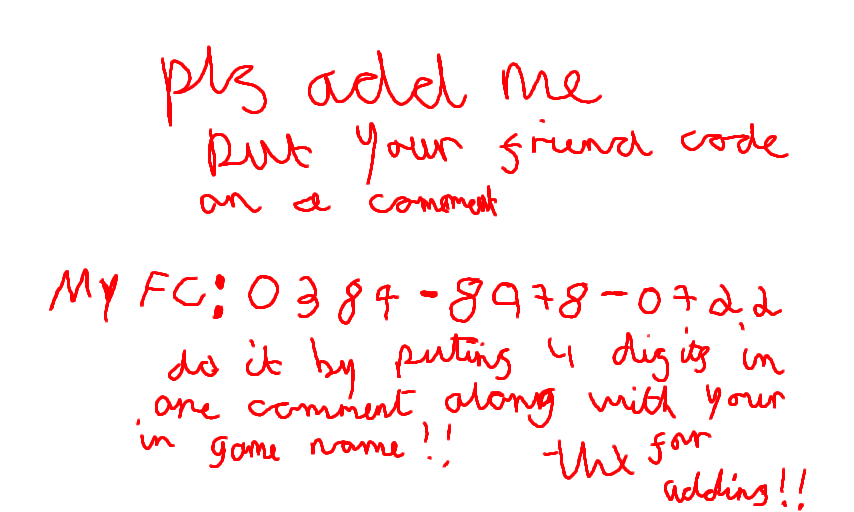 plz add me
put your friend code
on a comment
My FC: 0384-8978-0722
do it by puting 4 digits in
one comment along with your
in game name!!
-thx for
adding!!